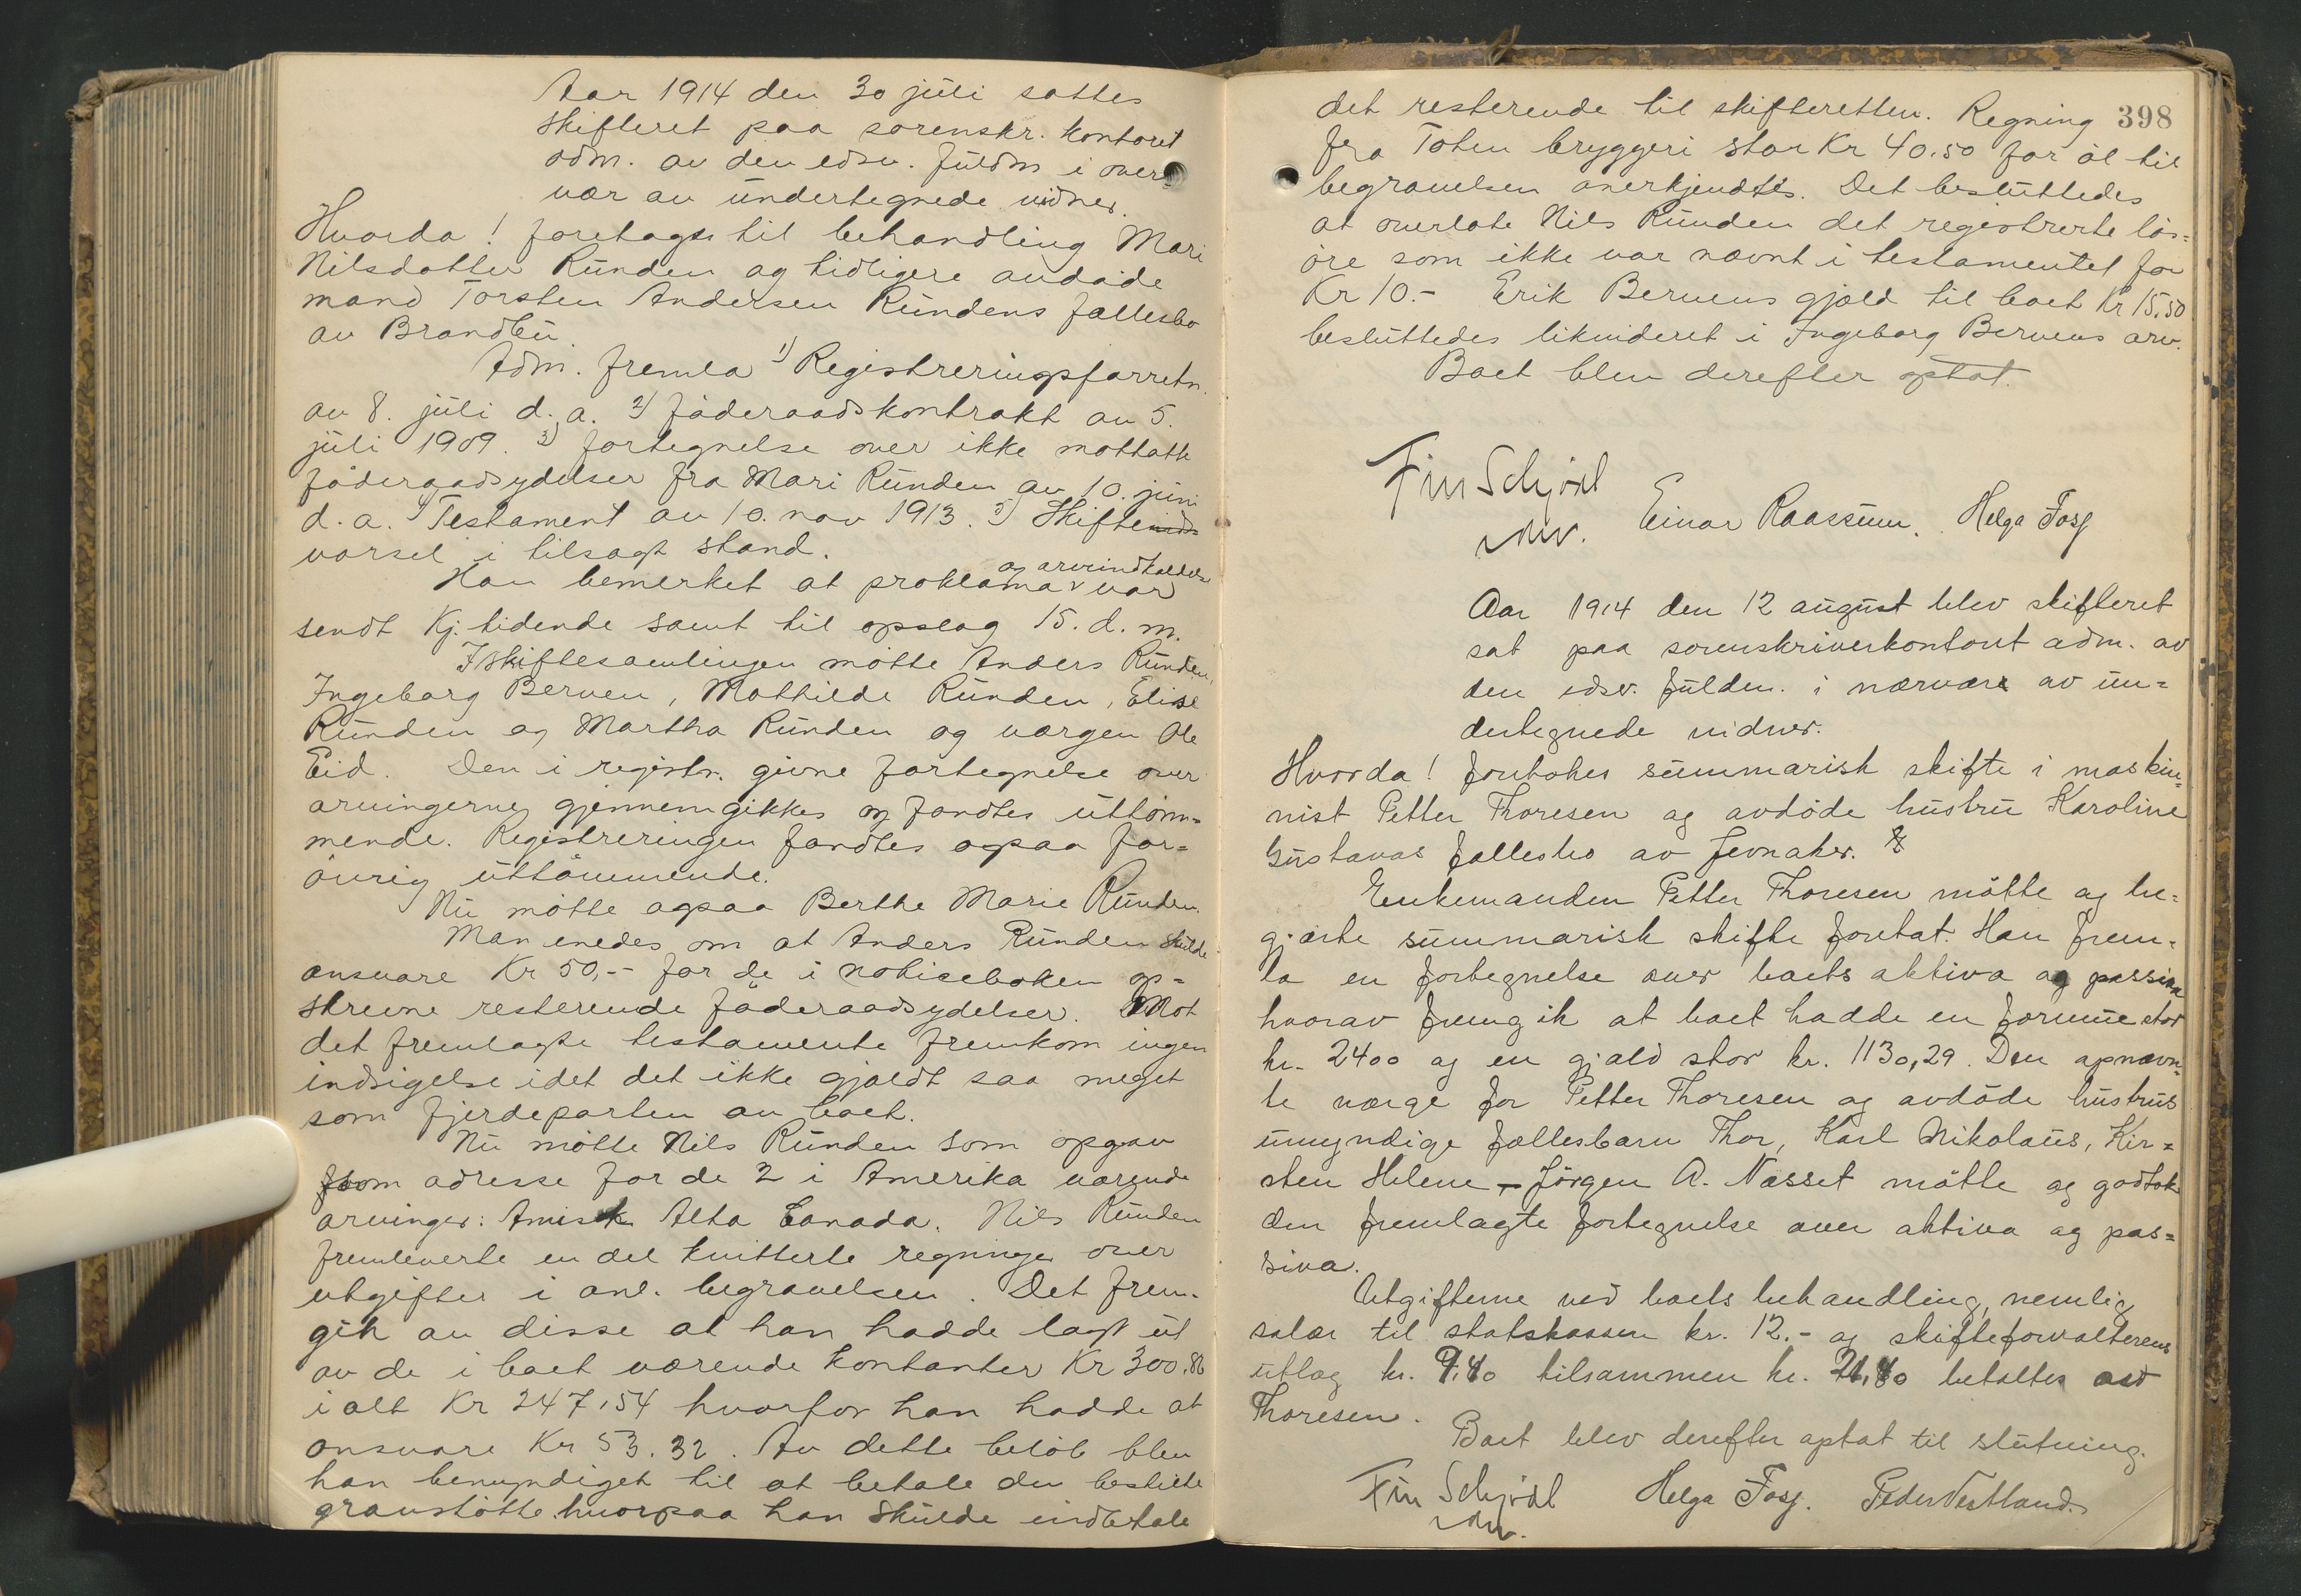 Aar 1914 den 30 juli sattes
skifteret paa sorenskr. kontoret
adm. av den edsv. fuldm i over=
vær av undertegnede vidner.
Hvorda! foretages til behandling Mari
Nilsdatter Runden og tidligere avdøde
mand Torsten Andersen Rundens fællesbo
av Brandbu.
Adm. fremla 1) Registreringsforretn.
av 8. juli d. a. 2) føderaadskontrakt av 5.
juli 1909. 3) fortegnelse over ikke mottatte
føderaadsydelser fra Mari Runden av 10. juni
d. a. 4) Testament av 10. nov 1913. 5) Skifte
varsel i tilsagt stand.
og arveindkaldelse
Han bemerket at proklama v var
sendt Kj. tidende samt til opslag 15. d. m.
I skiftesamlingen møtte Anders Runden,
Ingeborg Berven, Mathilde Runden, Elise
Runden og Martha Runden og værgen Ole
Eid. Den i registr. givne fortegnelse over
arvingerne gjennemgikkes og fandtes uttøm=
mende. Registreringen fandtes ogsaa for=
øvrig uttømmende.
Nu møtte ogsaa Berthe Marie Runden.
Man enedes om at Anders Runden skulde
ansvare Kr 50,-- for de i notiseboken op=
skrevne resterende føderaadsydelser. Mot
det fremlagte testamente fremkom ingen
indsigelse idet det ikke gjældt saa meget
som fjerdeparten av boet.
Nu møtte Nils Runden som opgav
som adresse for de 2 i Amerika værende
arvinger: Amisk Alta Canada. Nils Runden
fremleverte en del kvitterte regninger over
utgifter i anl. begravelsen. Det frem-
gik av disse at han hadde lagt ut
av de i boet værende kontanter Kr 300.86
i alt Kr 247,54 hvorfor han hadde at
ansvare Kr 53.32. Av dette beløb blev
han bemyndiget til at betale den bestilte
gravstøtte hvorpaa han skulde indbetale
398
det resterende til skifteretten. Regning
fra Toten bryggeri stor Kr 40.50 for øl til
begravelsen anerkjendtes. Det besluttedes
at overlate Nils Runden det registrerte løs=
øre som ikke var nævnt i testamentet for
Kr 10.- Erik Bervens gjæld til boet Kr 15,50
besluttedes likvideret i Ingeborg Bervens arv.
Boet blev derefter optat.
Fin Schjødl
edsv. Einar Raassum. Helga Fosf
Aar 1914 den 12 august blev skifteret
sat paa sorenskriverkontoret adm. av
den edsv. fuldm. i nærvære av un=
dertegnede vidner.
Hvorda! foretokes summarisk skifte i maskin=
nist Petter Thoresen og avdøde hustru Karoline
Gustavas fællesbo av Jevnaker.
Enkemanden Petter Thoresen møtte og be=
gjærte summarisk skifte foretat. Han frem=
la en fortegnelse over boets aktiva og passiva
hvorav fremgik at boet hadde en formue stor
kr. 2400 og en gjæld stor kr. 1130,29. Den opnævn=
te værge for Petter Thoresen og avdøde hustrus
umyndige fællesbarn Thor, Karl Nikolaus, Kir=
sten Helene - Jørgen A. Næsset møtte og godtok
den fremlagte fortegnelse over aktiva og pas=
siva.
Utgifterne ved boets behandling, nemlig
salær til statskassen kr. 12.- og skifteforvalterens
utlæg kr. 9.40 tilsammen kr. 21,40 betaltes av
Thoresen.
Boet blev derefter optat til slutning.
Fin Schjødl Helga Fosf. Peder Vestland.
edsv.